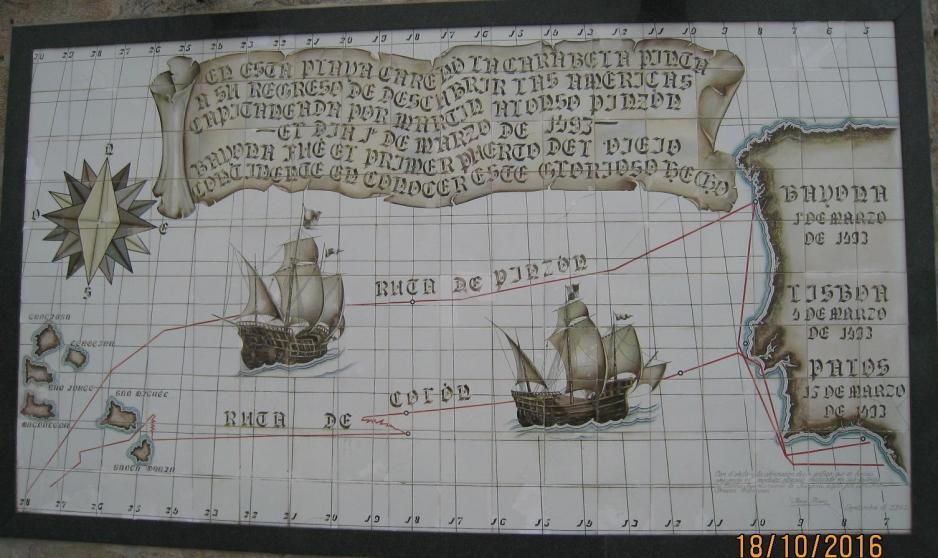 30 29 28 27 26 25 24 23 22 21 20 19 18 17 16 15 14 13 12 11 10 9 8 7 6 5
EN ESTA PLAYA CARENO LA CARABELA PINTA
A SU REGRESO DE DESCUBRIR LAS AMERICAS
CAPITANEADA POR MARTIN ALONSO PINZON
—EL DIA 1º DE MARZO DE 1493—
BAYONA FUE EL PRIMER PUERTO DEL VIEJO
CONTINENTE EN CONOCER ESTE GLORIOSO HECHO
N
O E
S
BAYONA
1º DE MARZO
DE 1493
RUTA DE PINZON
LISBOA
4 DE MARZO
DE 1493
PALOS
15 DE MARZO
DE 1493
GRACIOSA
SAO JORGE
SAO MICHEL
SANTA MARIA
RUTA DE COLÓN
28 27 26 25 24 23 22 21 20 19 18 17 16 15 14 13 12 11 10 9 8 7
18/10/2016